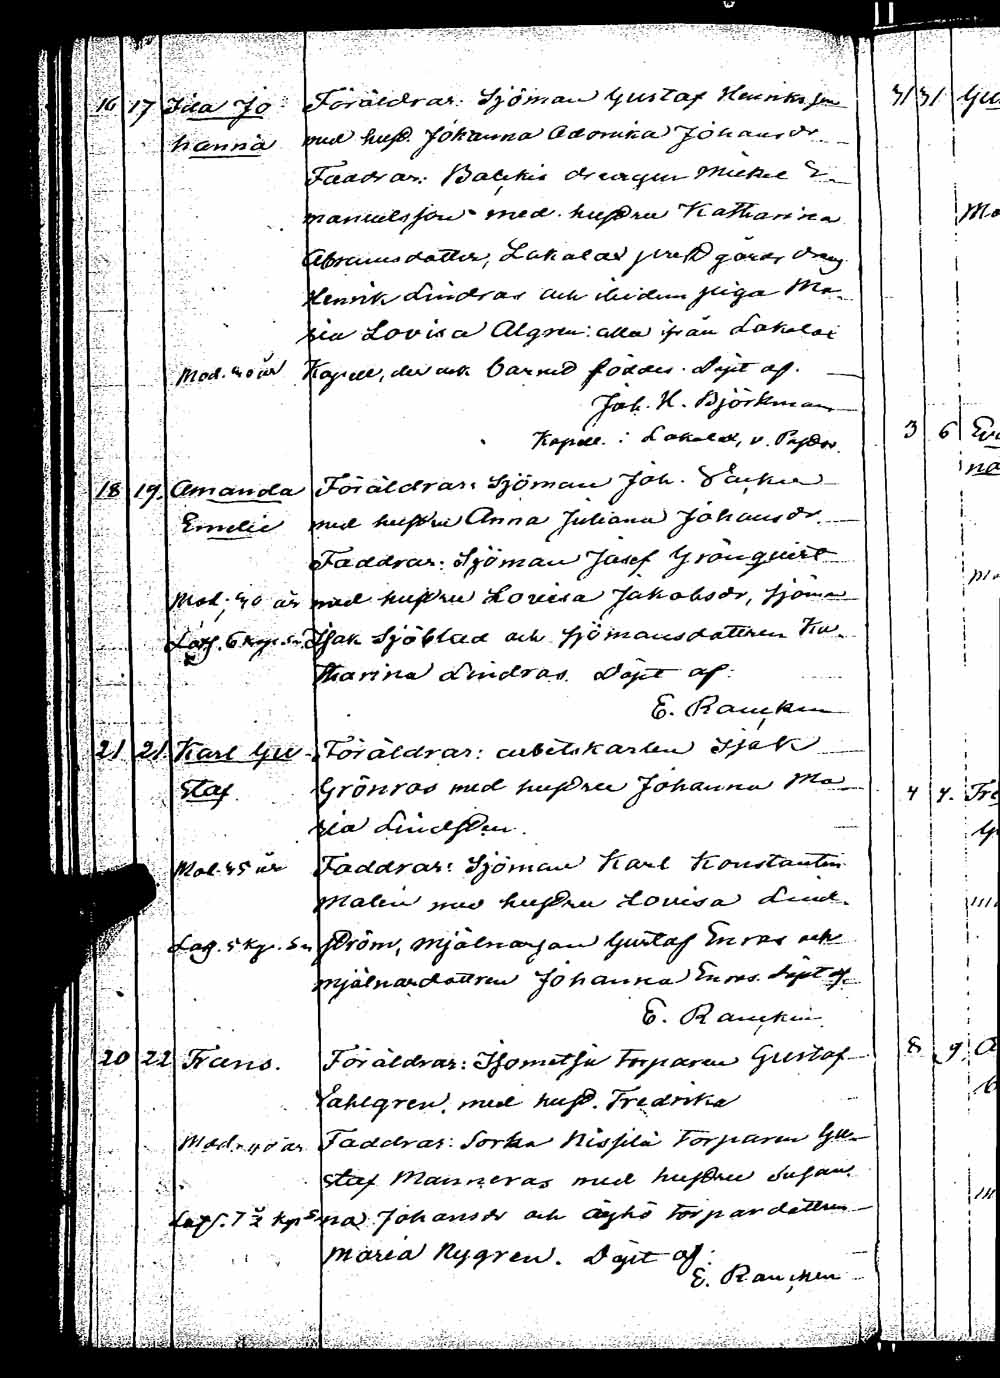 16 17 Ida Jo- Föräldrar: Sjöman Gustaf Henriksson
hanna med hust. Johanna Adorika Johansdr.
Faddrar: drengen Mickel E-
manuelsson med hustru Katharina
Abramsdotter, Lokalax prestgårds dreng
Henrik Lindras och ibidem piga Ma-
ria Lovisa Algren: alla från Lokalax
Mod. 30 år Kapell, der ock barnet föddes. Döpt af.
Joh. H. Björkman
Kapell. i Lokalax, v. Pastor.
18 19. Amanda Föräldrar: Sjöman Joh.
Emelie med hustru Anna Juliana Johansdr.
Faddrar: Sjöman Josef Grönqvist
Mod; 30 år med hustru Lovisa Jakobsdr, sjöman
Låtf. 6 kp. sn Isak Sjöblad och sjömansdottren Ka-
tharina Lindras. Döpt af:
E. Rancken
21 21. Karl Gu- Föräldrar: arbetskarlen Isak
staf Grönros med hustru Johanna Ma-
ria Lindsten.
Mod. 35 år Faddrar: Sjöman Karl Konstantin
Malin med hustru Lovisa Lind-
Låtf. 5 kp. sn ström, mjölnarson Gustaf Enros och
mjölnardottren Johanna Enros. Döpt af.
E. Rancken
20 22 Frans. Föräldrar: torparen Gustaf
Sahlgren, med hust. Fredrika
Mod. 40 år Faddrar: Sorka Nissilä torparen Gu-
staf Manneros med hustru Susan-
Låtf. 7 ½ kp. sn na Johansdr och torpardottren
Maria Nygren. Döpt af:
E. Rancken
31 31 Gu
Mo
3 6
na
4 4. Fre
G
8 9. A